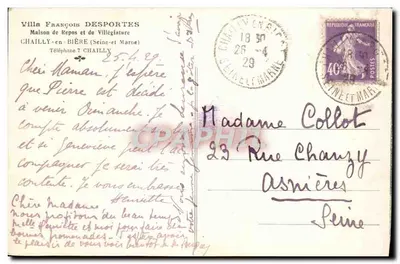 Villa François DESPORTES
Maison de Repos et de Villégiature
CHAILLY-en-BIÈRE (Seine-et-Marne)
Téléphone 7 CHAILLY
25.4.29
Chère Maman, J'espère
que Pierre est décidé
à venir Dimanche. Je
compte absolument
et si Geneviève peut l'ac
compagner je serai très
contente. Je vous embrasse
Henriette
Chère Madame
Nous profitons du beau temps
Melle Henriette et moi pour faire des
bonnes promenades
le plaisir de vous voir bientôt
CHAILLY-EN-BIERE
18 30
26 - 4
29
SEINE ET MARNE
40c
POSTES
Madame Collot
23 Rue Chanzy
Asnières
Seine
CPARAMA